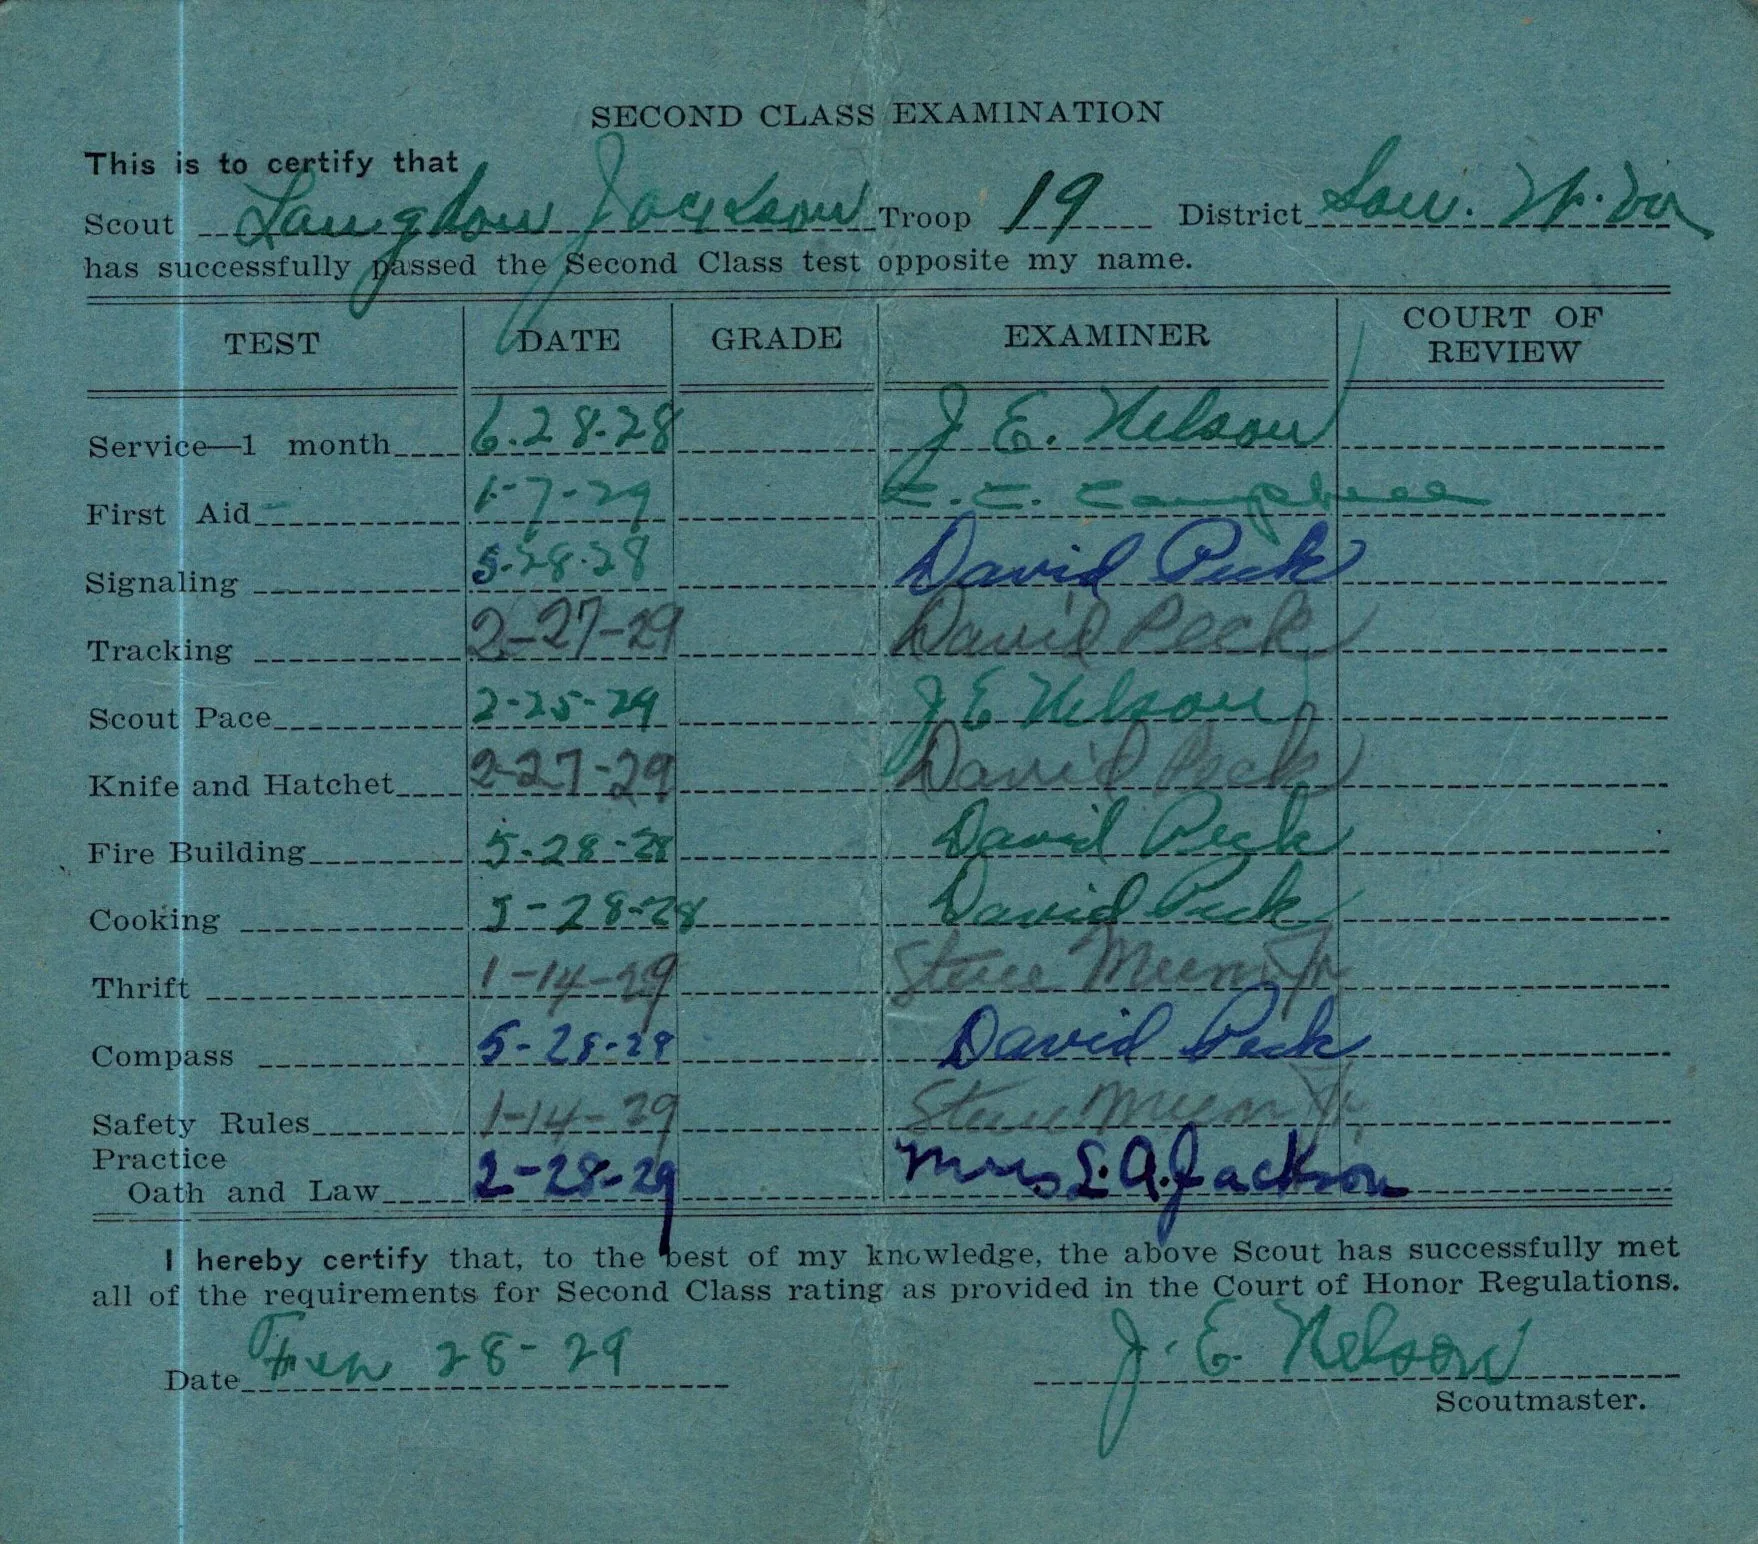 SECOND CLASS EXAMINATION
This is to certify that
Scout Langdon Jackson Troop 19 District
has successfully passed the Second Class test opposite my name.
TEST DATE GRADE EXAMINER COURT OF REVIEW
Service—1 month 6.28-28 J E. Nelson
First Aid 1-7-29 Campbell
Signaling 5-28-28 David Peck
Tracking 2-27-29 David Peck
Scout Pace 2-25-29 J E Nelson
Knife and Hatchet 2-27-29 David Peck
Fire Building 5-28-28 David Peck
Cooking 5-28-28 David Peck
Thrift 1-14-29 Jr.
Compass 5-28-28 David Peck
Safety Rules 1-14-29 Jr.
Practice
Oath and Law 2-28-29 Mrs L. A. Jackson
I hereby certify that, to the best of my knowledge, the above Scout has successfully met
all of the requirements for Second Class rating as provided in the Court of Honor Regulations.
Date 28-29 J. E. Nelson
Scoutmaster.